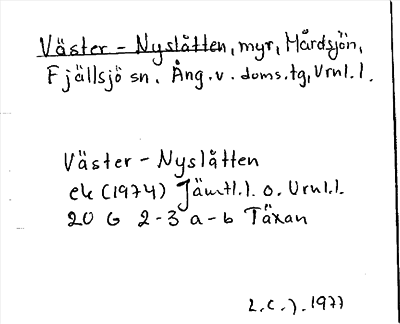 Väster-Nyslåtten, myr, Mårdsjön,
Fjällsjö sn. Ång. v. doms.tg, Vrnl.l.
Väster-Nyslåtten
ek (1974) Jämtl.l. o. Vrnl.l.
20 G 2-3 a-b Täxan
L.C.J. 1977